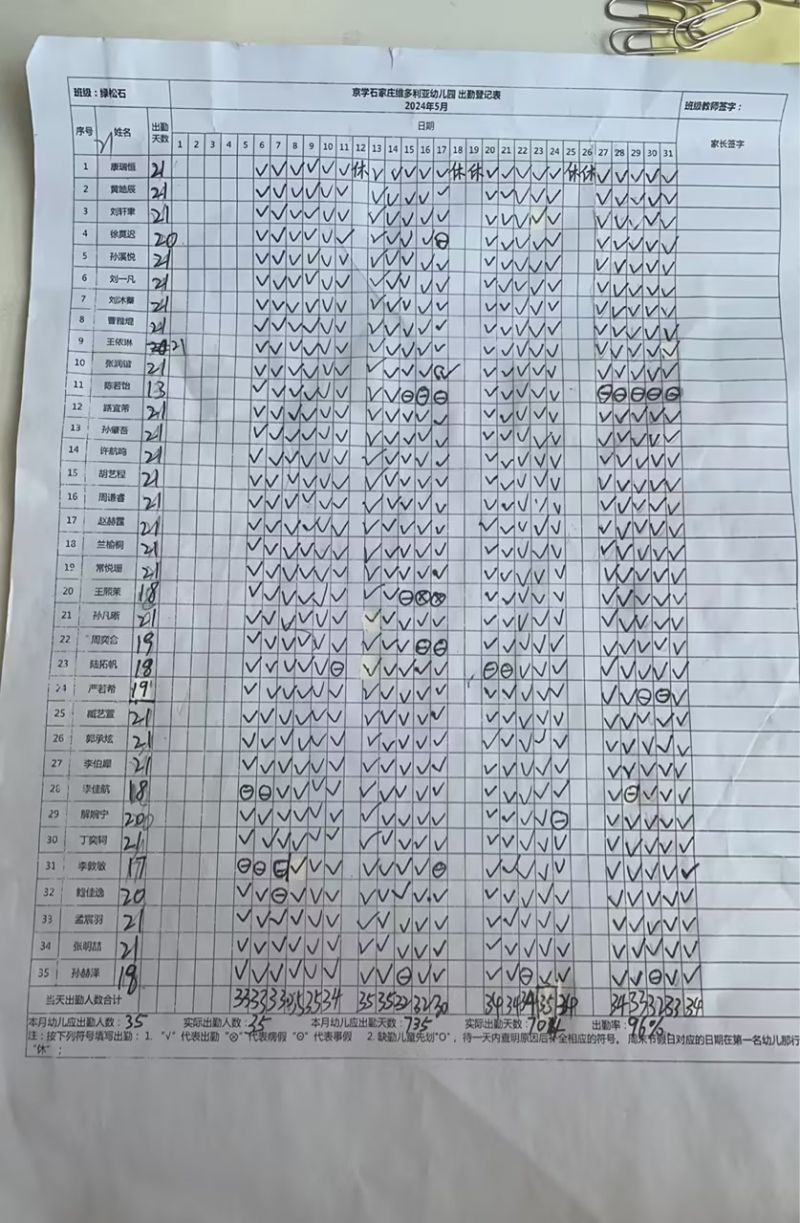 班级：绿松石 京学石家庄维多利亚幼儿园 出勤登记表 班级教师签字：
2024年5月
序号 姓名 出勤天数 日期 家长签字
1 2 3 4 5 6 7 8 9 10 11 12 13 14 15 16 17 18 19 20 21 22 23 24 25 26 27 28 29 30 31
1 康瑞恒 21 √ √ √ √ √ √ 休 √ √ √ √ √ 休 休 √ √ √ √ √ 休 休 √ √ √ √ √
2 黄皓辰 21 √ √ √ √ √ √ √ √ √ √ √ √ √ √ √ √ √ √ √ √ √
3 刘轩聿 21 √ √ √ √ √ √ √ √ √ √ √ √ √ √ √ √ √ √ √ √ √
4 徐莫迟 20 √ √ √ √ √ √ √ √ √ √ ⊖ √ √ √ √ √ √ √ √ √ √
5 孙溪悦 21 √ √ √ √ √ √ √ √ √ √ √ √ √ √ √ √ √ √ √ √ √
6 刘一凡 21 √ √ √ √ √ √ √ √ √ √ √ √ √ √ √ √ √ √ √ √ √
7 刘沐蓁 21 √ √ √ √ √ √ √ √ √ √ √ √ √ √ √ √ √ √ √ √ √
8 曹程焜 21 √ √ √ √ √ √ √ √ √ √ √ √ √ √ √ √ √ √ √ √ √
9 王依琳 21 √ √ √ √ √ √ √ √ √ √ √ √ √ √ √ √ √ √ √ √ √
10 张润谊 21 √ √ √ √ √ √ √ √ √ √ √ √ √ √ √ √ √ √ √ √
11 陈若怡 13 √ √ √ √ √ √ √ √ ⊖ ⊖ ⊖ √ √ √ √ √ ⊖ ⊖ ⊖ ⊖ ⊖
12 路宜芾 21 √ √ √ √ √ √ √ √ √ √ √ √ √ √ √ √ √ √ √ √ √
13 孙肇吾 21 √ √ √ √ √ √ √ √ √ √ √ √ √ √ √ √ √ √ √ √ √
14 许航鸣 21 √ √ √ √ √ √ √ √ √ √ √ √ √ √ √ √ √ √ √ √ √
15 胡艺程 21 √ √ √ √ √ √ √ √ √ √ √ √ √ √ √ √ √ √ √ √ √
16 周谦睿 21 √ √ √ √ √ √ √ √ √ √ √ √ √ √ √ √ √ √ √ √ √
17 赵赫霆 21 √ √ √ √ √ √ √ √ √ √ √ √ √ √ √ √ √ √ √ √ √
18 兰榆桐 21 √ √ √ √ √ √ √ √ √ √ √ √ √ √ √ √ √ √ √ √ √
19 常悦珊 21 √ √ √ √ √ √ √ √ √ √ √ √ √ √ √ √ √ √ √ √ √
20 王熙茉 18 √ √ √ √ √ √ √ √ ⊖ ⊗ ⊗ √ √ √ √ √ √ √ √ √ √
21 孙凡晰 21 √ √ √ √ √ √ √ √ √ √ √ √ √ √ √ √ √ √ √ √ √
22 周奕仑 19 √ √ √ √ √ √ √ √ √ ⊖ ⊖ √ √ √ √ √ √ √ √ √ √
23 陆拓帆 18 √ √ √ √ √ ⊖ √ √ √ √ √ ⊖ ⊖ √ √ √ √ √ √ √ √
24 严若希 19 √ √ √ √ √ √ √ √ √ √ √ √ √ √ √ √ √ √ ⊖ ⊖ √
25 臧艺萱 21 √ √ √ √ √ √ √ √ √ √ √ √ √ √ √ √ √ √ √ √ √
26 郭承炫 21 √ √ √ √ √ √ √ √ √ √ √ √ √ √ √ √ √ √ √ √ √
27 李伯 21 √ √ √ √ √ √ √ √ √ √ √ √ √ √ √ √ √ √ √ √ √
28 李佳航 18 ⊖ ⊖ √ √ √ √ √ √ √ √ √ √ √ √ √ √ √ ⊖ √ √ √
29 解婉宁 20 √ √ √ √ √ √ √ √ √ √ √ √ √ √ √ ⊖ √ √ √ √ √
30 丁奕轲 21 √ √ √ √ √ √ √ √ √ √ √ √ √ √ √ √ √ √ √ √ √
31 李敦敏 17 ⊖ ⊖ ⊖ √ √ √ √ √ √ √ ⊖ √ √ √ √ √ √ √ √ √ √
32 佳逸 20 √ √ ⊖ √ √ √ √ √ √ √ √ √ √ √ √ √ √ √ √ √ √
33 孟宸羽 21 √ √ √ √ √ √ √ √ √ √ √ √ √ √ √ √ √ √ √ √ √
34 张明喆 21 √ √ √ √ √ √ √ √ √ √ √ √ √ √ √ √ √ √ √ √ √
35 孙赫泽 18 √ √ √ √ √ √ √ √ ⊖ √ √ √ √ ⊖ √ √ √ √ ⊖ √ √
当天出勤人数合计 33 33 33 35 35 34 35 35 32 30 34 34 34 35 34 34 33 32 33 34
本月幼儿应出勤人数：35 实际出勤人数：35 本月幼儿应出勤天数：735 实际出勤天数：704 出勤率：96%
注：按下列符号填写出勤：1. "√" 代表出勤 "⊗" 代表病假 "⊖" 代表事假 2.缺勤儿童先划"O"，待一天内查明原因后补全相应的符号。 周末节假日对应的日期在第一名幼儿那行
"休"；